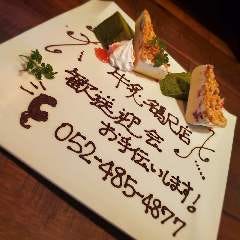 店
歓送迎会
お手伝いします!
052-485-4877